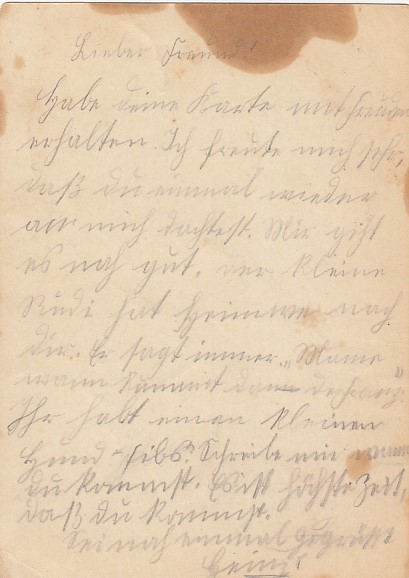 Lieber Freund!
Habe deine Karte mit Freuden
erhalten. Ich freute mich sehr,
daß du einmal wieder
an mich dachtest. Mir giht
es nah gut. Der kleine
Rudi hat Heimwe nach
dir. Er sagt immer „Mame"
wann kummt dan der Franz.
Ihr habt einen kleinen
Hund Schreibe mir wann
du kommst. Es ist höchste Zeit,
daß du kommst.
Sei nah einmal gegrüßt
Heini